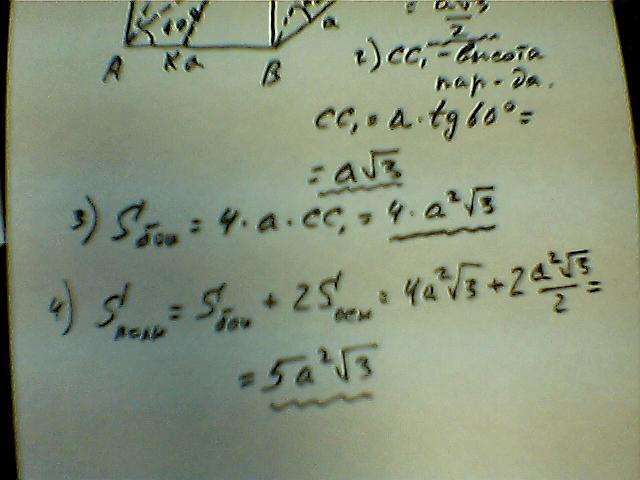 = a√3/2
A Ka B a
60°
2) CC₁ - высота
пар-да.
CC₁ = a · tg 60° =
= a√3
3) Sбок = 4 · a · CC₁ = 4 · a²√3
4) Sполн = Sбок + 2Sосн = 4a²√3 + 2 a²√3/2 =
= 5a²√3